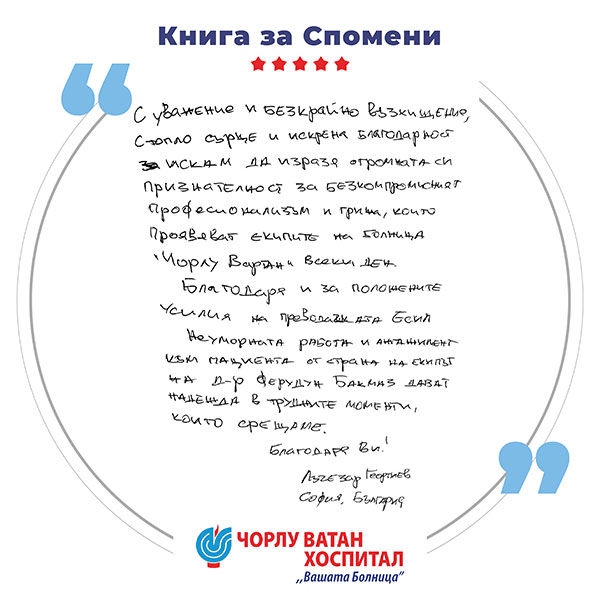 Книга за Спомени
С уважение и безкрайно възхищение,
с топло сърце и искрена благодарност
за искам да изразя огромната си
признателност за безкомпромисният
професионализъм и грижа, които
проявяват екипите на болница
"Чорлу Вартан" всеки ден.
Благодаря и за положените
усилия на преводачката Есил
Неуморната работа и ангажимент
към пациента от страна на екипът
на д-р Ферудун Бакмаз дават
надежда в трудните моменти,
които срещаме.
Благодаря Ви!
Лъчезар Георгиев
София, България
ЧОРЛУ ВАТАН
ХОСПИТАЛ
,,Вашата Болница"